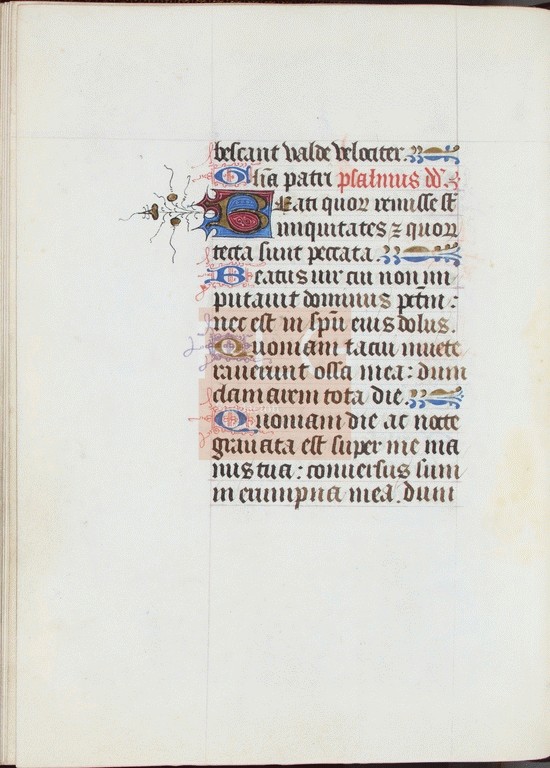 bescant valde velociter.
Glīa patri psalmus dd̄.
Beati quoꝝ remisse s̄t
iniquitates ⁊ quoꝝ
tecta sunt peccata.
Beatus uir cui non im
putauit dominus pctm̄:
nec est in sp̄u eius dolus.
Quoniam tacui inuete
rauerunt ossa mea: dum
clamarem tota die.
Quoniam die ac nocte
grauata est super me ma
nus tua: conuersus sum
in erumpna mea. dum